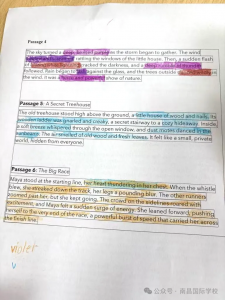 Passage 4
The sky turned a as the storm began to gather. The wind
rattling the windows of the little house. Then, a sudden flash
cracked the darkness, and a
followed. Rain began to against the glass, and the trees outside
the wind. It was a
Passage 5: A Secret Treehouse
The old treehouse stood high above the ground, a little house of wood and nails. Its
wooden ladder was gnarled and creaky, a secret stairway to a cozy hideaway. Inside,
a soft breeze whispered through the open window, and dust motes danced in the
sunbeam. The air smelled of old wood and fresh leaves. It felt like a small, private
world, hidden from everyone.
Passage 6: The Big Race
Maya stood at the starting line, her heart thundering in her chest. When the whistle
blew, she streaked down the track, her legs a pounding blur. The other runners
pushed past her, but she kept going. The crowd on the sidelines roared with
excitement, and Maya felt a sudden surge of energy. She leaned forward, pushing
herself to the very end of the race, a powerful burst of speed that carried her across
the finish line.
violet
v
公众号 · 南昌国际学校